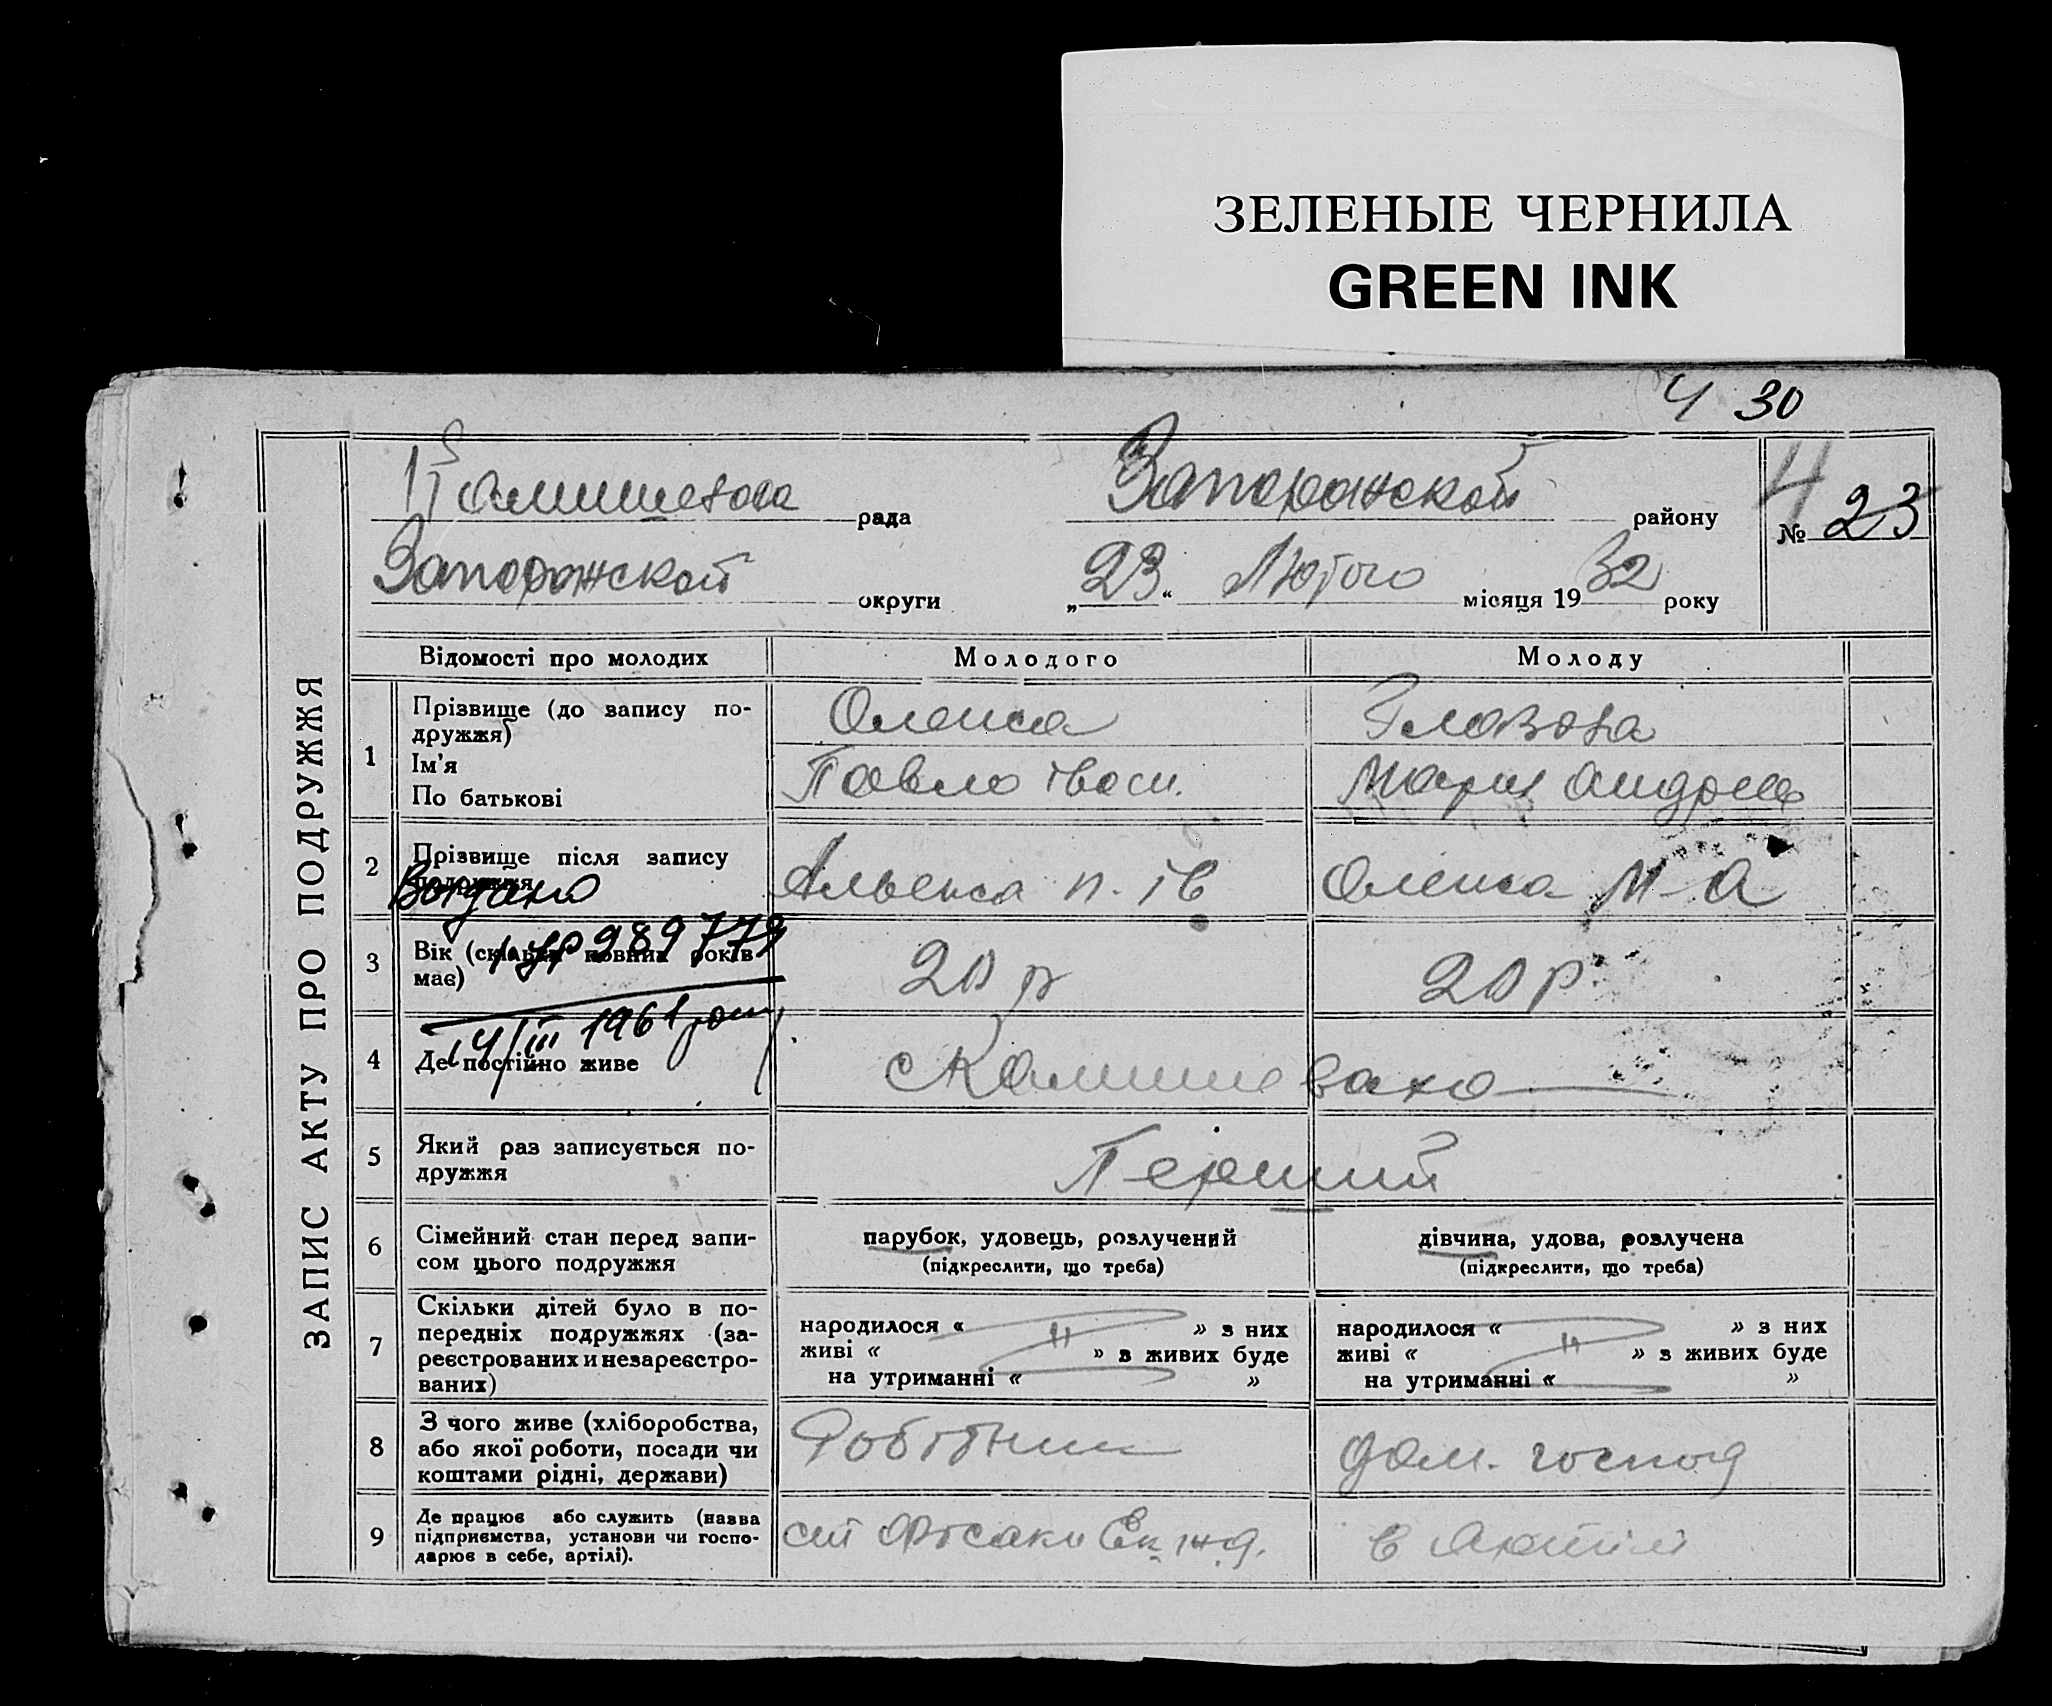 ЗЕЛЕНЫЕ ЧЕРНИЛА
GREEN INK
4 30
рада
Запорожской району
4
№ 23
Запорожской округи
„23“ Лютого місяця 1932 року
ЗАПИС АКТУ ПРО ПОДРУЖЖЯ
Відомості про молодих
Молодого
Молоду
1
Прізвище (до запису по-
дружжя)
Ім'я
По батькові
Олекса
Павло Іван.
Глазова
Мария Андрее
2
Прізвище після запису
подружжя
Альекса П. Ів
Олекса М-А
3
Вік (скільки повних років
має)
20 р
20 р.
989779
14/III 1961
4
Де постійно живе
с Комишеваха
5
Який раз записується по-
дружжя
Перший
6
Сімейний стан перед запи-
сом цього подружжя
парубок, удовець, розлучений
(підкреслити, що треба)
дівчина, удова, розлучена
(підкреслити, що треба)
7
Скільки дітей було в по-
передніх подружжях (за-
реєстрованих и незареєстро-
ваних)
народилося « » з них
живі « » з живих буде
на утриманні « »
народилося « » з них
живі « » з живих буде
на утриманні « »
8
З чого живе (хліборобства,
або якої роботи, посади чи
коштами рідні, держави)
Робітник
дом. господ
9
Де працює або служить (назва
підприємства, установи чи госпо-
дарює в себе, артілі).
в Артілі